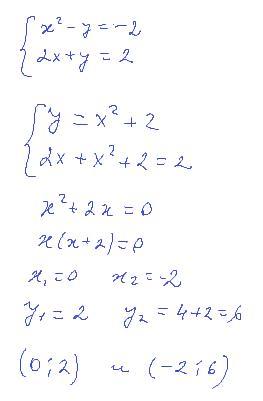 x² - y = -2
2x + y = 2
y = x² + 2
2x + x² + 2 = 2
x² + 2x = 0
x(x+2) = 0
x₁ = 0 x₂ = -2
y₁ = 2 y₂ = 4+2 = 6
(0; 2) и (-2; 6)